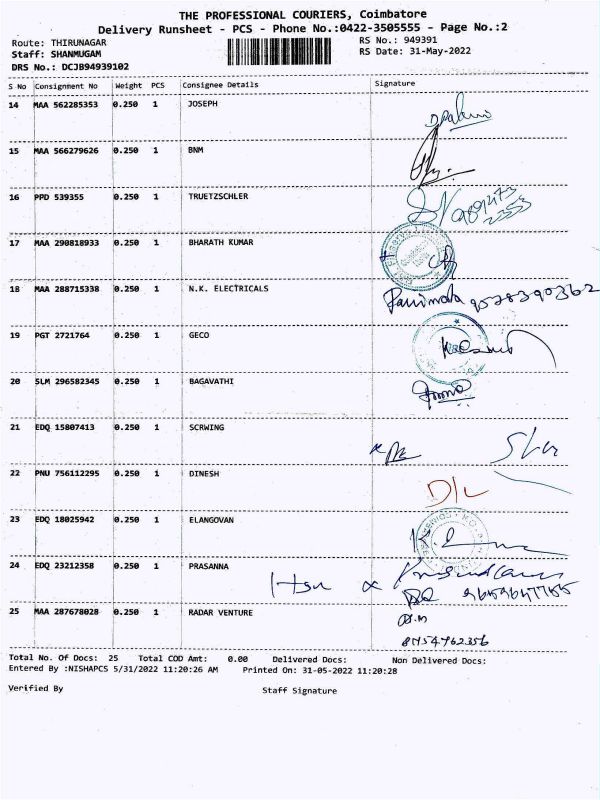 THE PROFESSIONAL COURIERS, Coimbatore
Delivery Runsheet - PCS - Phone No.:0422-3505555 - Page No.:2
Route: THIRUNAGAR
RS No.: 949391
Staff: SHANMUGAM
RS Date: 31-May-2022
DRS No.: DCJB94939102
S No Consignment No Weight PCS Consignee Details Signature
14 MAA 562285353 0.250 1 JOSEPH
15 MAA 566279626 0.250 1 BNM
16 PPD 539355 0.250 1 TRUETZSCHLER
17 MAA 290818933 0.250 1 BHARATH KUMAR
18 MAA 288715338 0.250 1 N.K. ELECTRICALS 9578390362
19 PGT 2721764 0.250 1 GECO
20 SLM 296582345 0.250 1 BAGAVATHI
21 EDQ 15807413 0.250 1 SCRWING
22 PNU 756112295 0.250 1 DINESH D/L
23 EDQ 18025942 0.250 1 ELANGOVAN
24 EDQ 23212358 0.250 1 PRASANNA
25 MAA 287678028 0.250 1 RADAR VENTURE
8754762356
Total No. Of Docs: 25 Total COD Amt: 0.00 Delivered Docs: Non Delivered Docs:
Entered By :NISHAPCS 5/31/2022 11:20:26 AM Printed On: 31-05-2022 11:20:28
Verified By Staff Signature